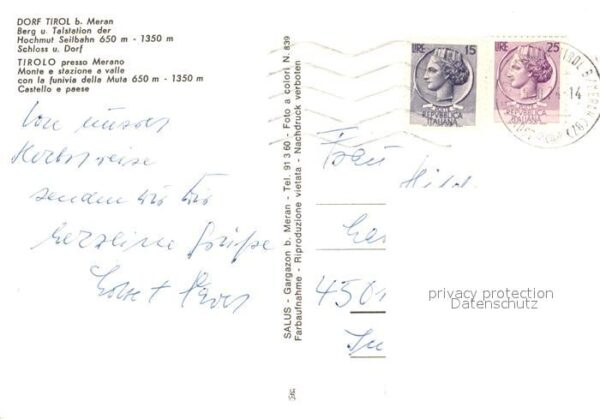 DORF TIROL b. Meran
Berg u. Talstation der
Hochmut Seilbahn 650 m - 1350 m
Schloss u. Dorf
TIROLO presso Merano
Monte e stazione a valle
con la funivia della Muta 650 m - 1350 m
Castello e paese
Von unserer
Herbstreise
senden wir Dir
herzliche Grüße
SALUS - Gargazon b. Meran - Tel. 91 3 60 - Foto a colori N. 839
Farbaufnahme - Riproduzione vietata - Nachdruck verboten
LIRE 15
REPVBBLICA
ITALIANA
LIRE 25
REPVBBLICA
ITALIANA
Frau
4501
privacy protection
Datenschutz